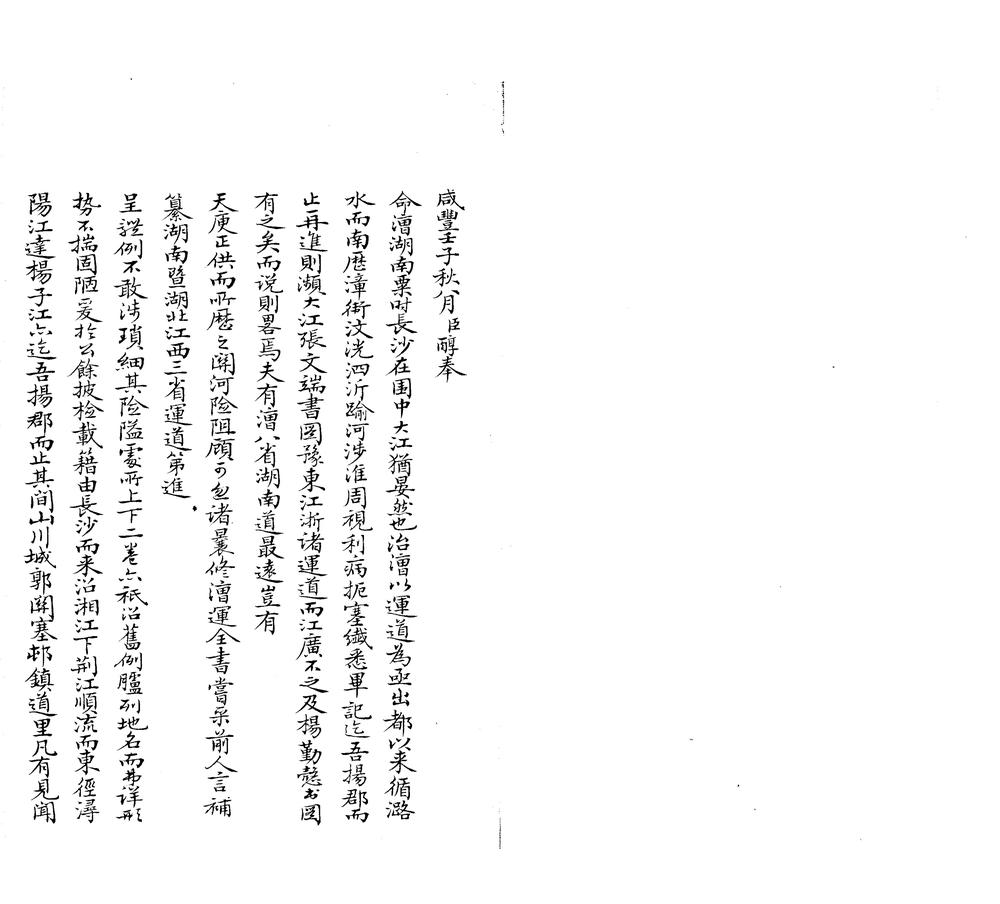 咸豐壬子秋八月臣醇奉
命漕湖南粟时長沙在围中大江猶晏然也治漕以運道為亟出都以来循潞
水而南歷漳衛汶洸泗沂踰河涉淮周視利病扼塞纎悉畢記迄吾揚郡而
止再進則瀕大江張文端書图豫東江浙诸運道而江廣不之及楊勤慤书图
有之矣而说則畧焉夫有漕八省湖南道最遠豈有
天庾正供而所歷之関河险阻顾可忽诸曩修漕運全書嘗采前人言補
纂湖南暨湖北江西三省運道第進
呈體例不敢涉瑣細其险隘處所上下二卷亦祇沿舊例臚列地名而弗详形
势不揣固陋爰於公餘披检載籍由長沙而来沿湘江下荆江順流而東徑潯
陽江達揚子江亦迄吾揚郡而止其间山川城郭関塞邨鎮道里凡有見聞